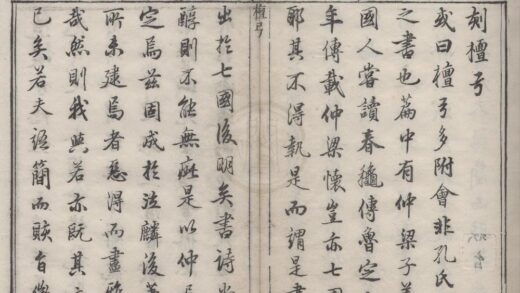 刻檀弓
或曰檀弓多附會非孔氏
之書也篇中有仲梁子
國人嘗讀春穐傳魯定
年傳載仲梁懷豈亦七
耶其不得執是而謂是
檀弓
出於七國後明矣書詩
醇則不能無疵是以仲
定焉茲固成於法麟後
所未建焉者惡得而盡
哉然則我與若亦既其
已矣若夫語簡而賅